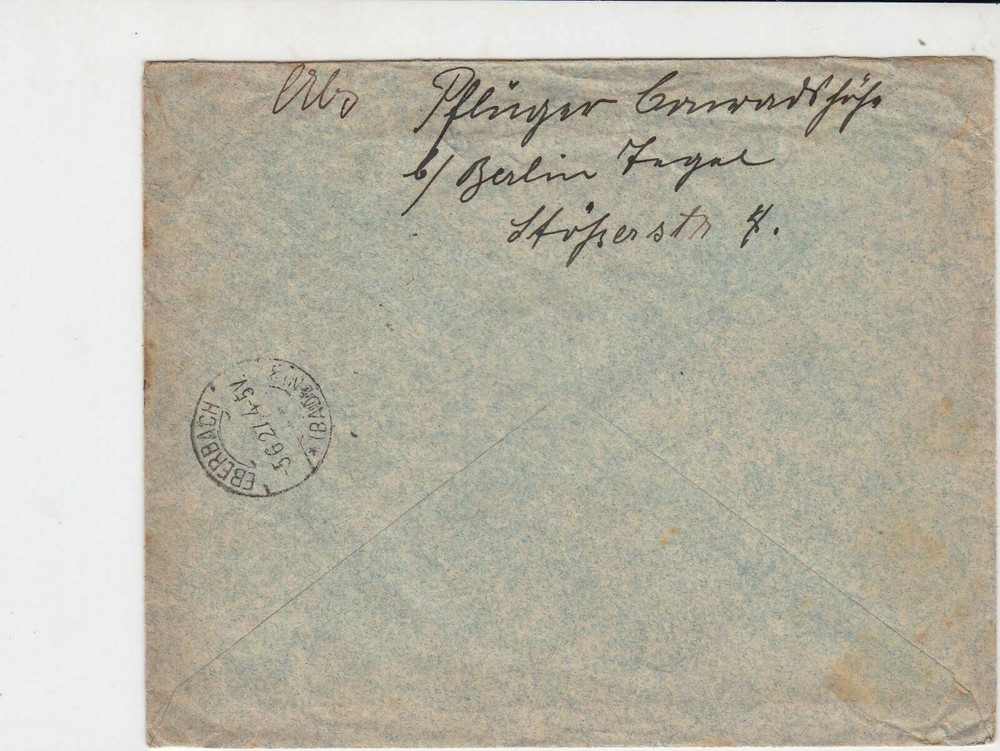 Abs Pflüger Conradshöhe
b/ Berlin Tegel
Stößerstr 4.
EBERBACH
(BADEN)
5 6 27. 4-5V.